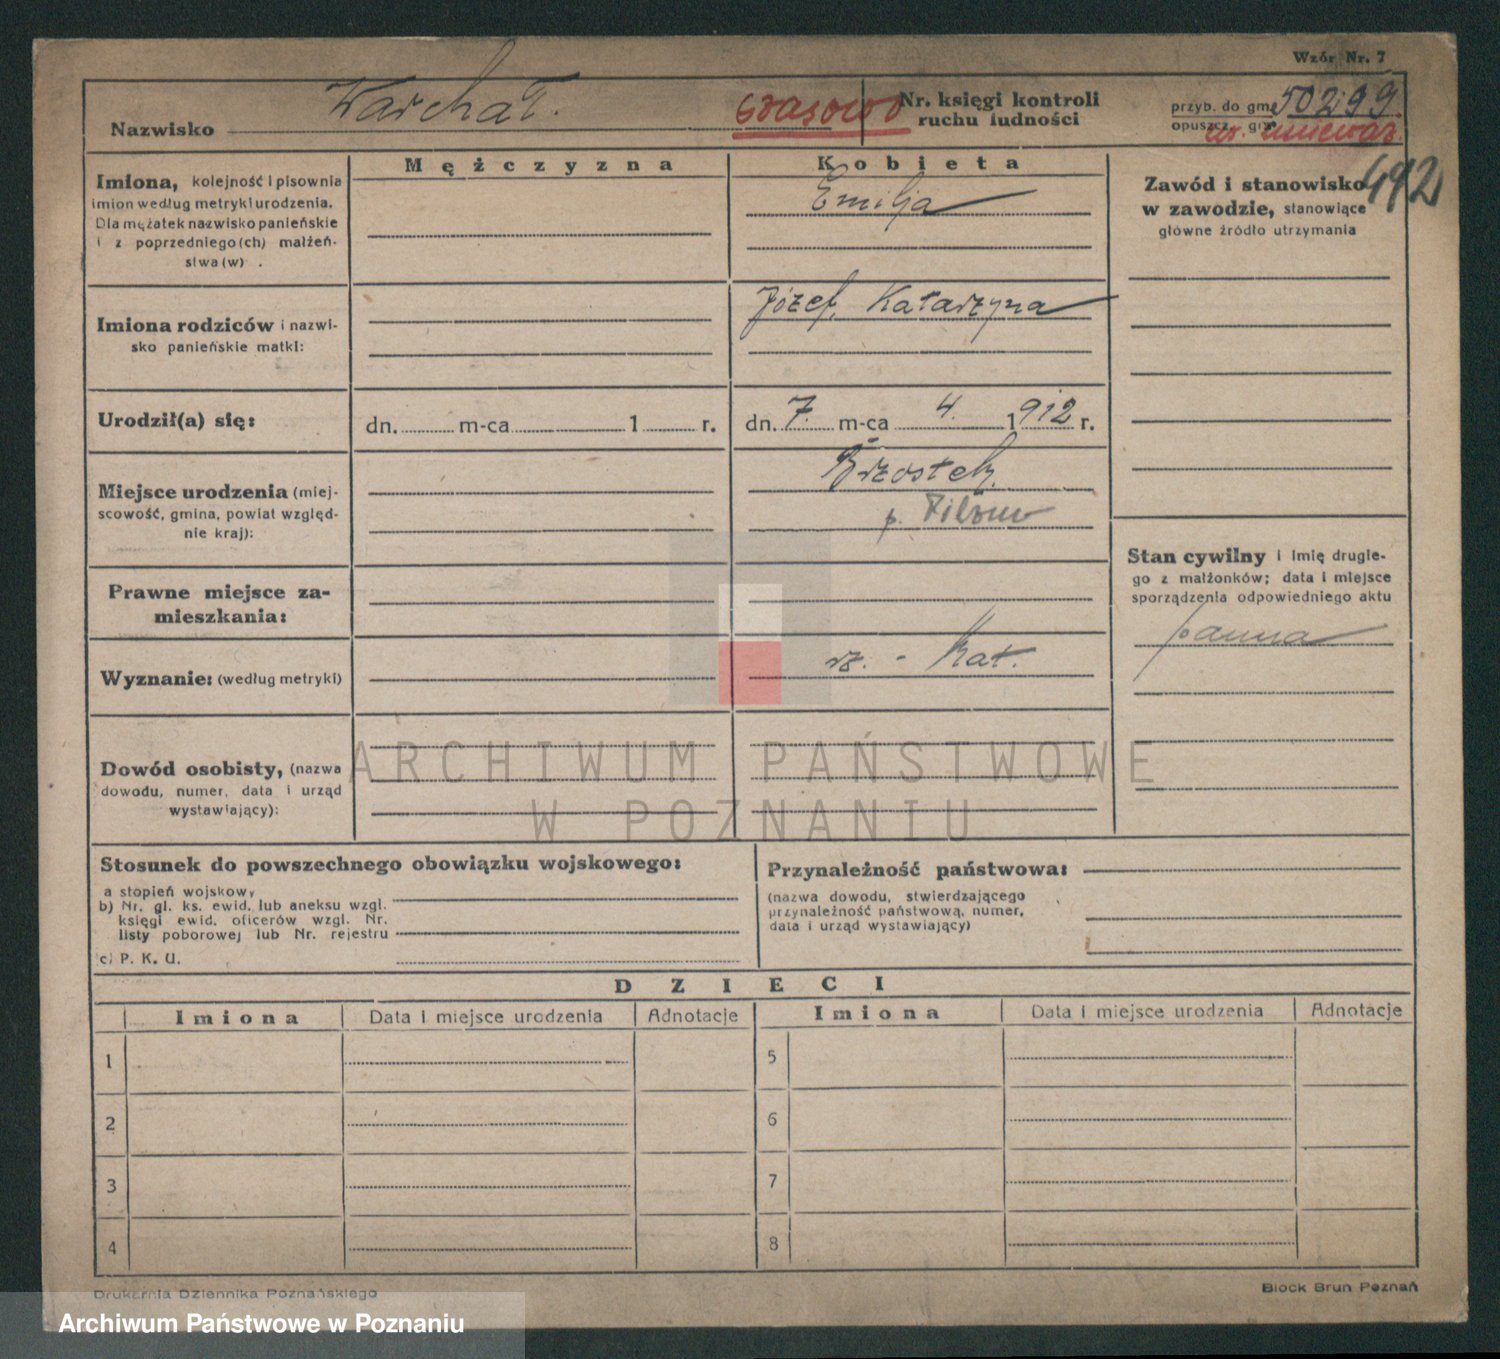 Wzór Nr. 7
Nazwisko Warchał. czasowo Nr. księgi kontroli ruchu ludności przyb. do gm. 50299.
opuszcz. gm. unieważ.
492
Mężczyzna Kobieta
Imiona, kolejność i pisownia
imion według metryki urodzenia.
Dla mężatek nazwisko panieńskie
i z poprzedniego(ch) małżeń-
stwa(w) .
Emilja
Zawód i stanowisko
w zawodzie, stanowiące
główne źródło utrzymania
Imiona rodziców i nazwi-
sko panieńskie matki:
Józef, Katarzyna
Urodził(a) się: dn. m-ca 1 r. dn. 7. m-ca 4. 1912 r.
Miejsce urodzenia (miej-
scowość, gmina, powiat względ-
nie kraj):
Brzostek
p. Pilzno
Stan cywilny i imię drugie-
go z małżonków; data i miejsce
sporządzenia odpowiedniego aktu
panna
Prawne miejsce za-
mieszkania:
Wyznanie: (według metryki) rz. - kat.
Dowód osobisty, (nazwa
dowodu, numer, data i urząd
wystawiający):
ARCHIWUM PAŃSTWOWE
W POZNANIU
Stosunek do powszechnego obowiązku wojskowego:
a stopień wojskowy
b) Nr. gl. ks. ewid. lub aneksu wzgl.
księgi ewid. oficerów wzgl. Nr.
listy poborowej lub Nr. rejestru
c) P. K. U.
Przynależność państwowa:
(nazwa dowodu, stwierdzającego
przynależność państwową, numer,
data i urząd wystawiający)
DZIECI
Imiona Data i miejsce urodzenia Adnotacje Imiona Data i miejsce urodzenia Adnotacje
1 5
2 6
3 7
4 8
Drukarnia Dziennika Poznańskiego Block Brun Poznań
Archiwum Państwowe w Poznaniu